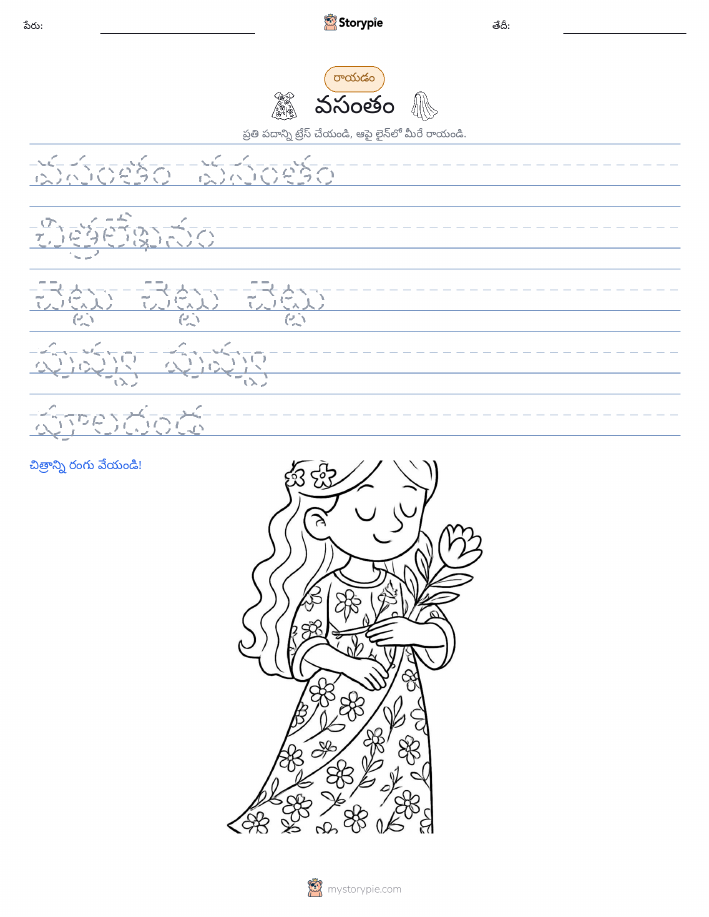 పేరు: Storypie తేదీ:
రాయడం
వసంతం
ప్రతి పదాన్ని ట్రేస్ చేయండి, ఆపై లైన్‌లో మీరే రాయండి.
వసంతం వసంతం
చిత్రలేఖనం
చెట్టు చెట్టు చెట్టు
పువ్వు పువ్వు
పూలదండ
చిత్రాన్ని రంగు వేయండి!
mystorypie.com